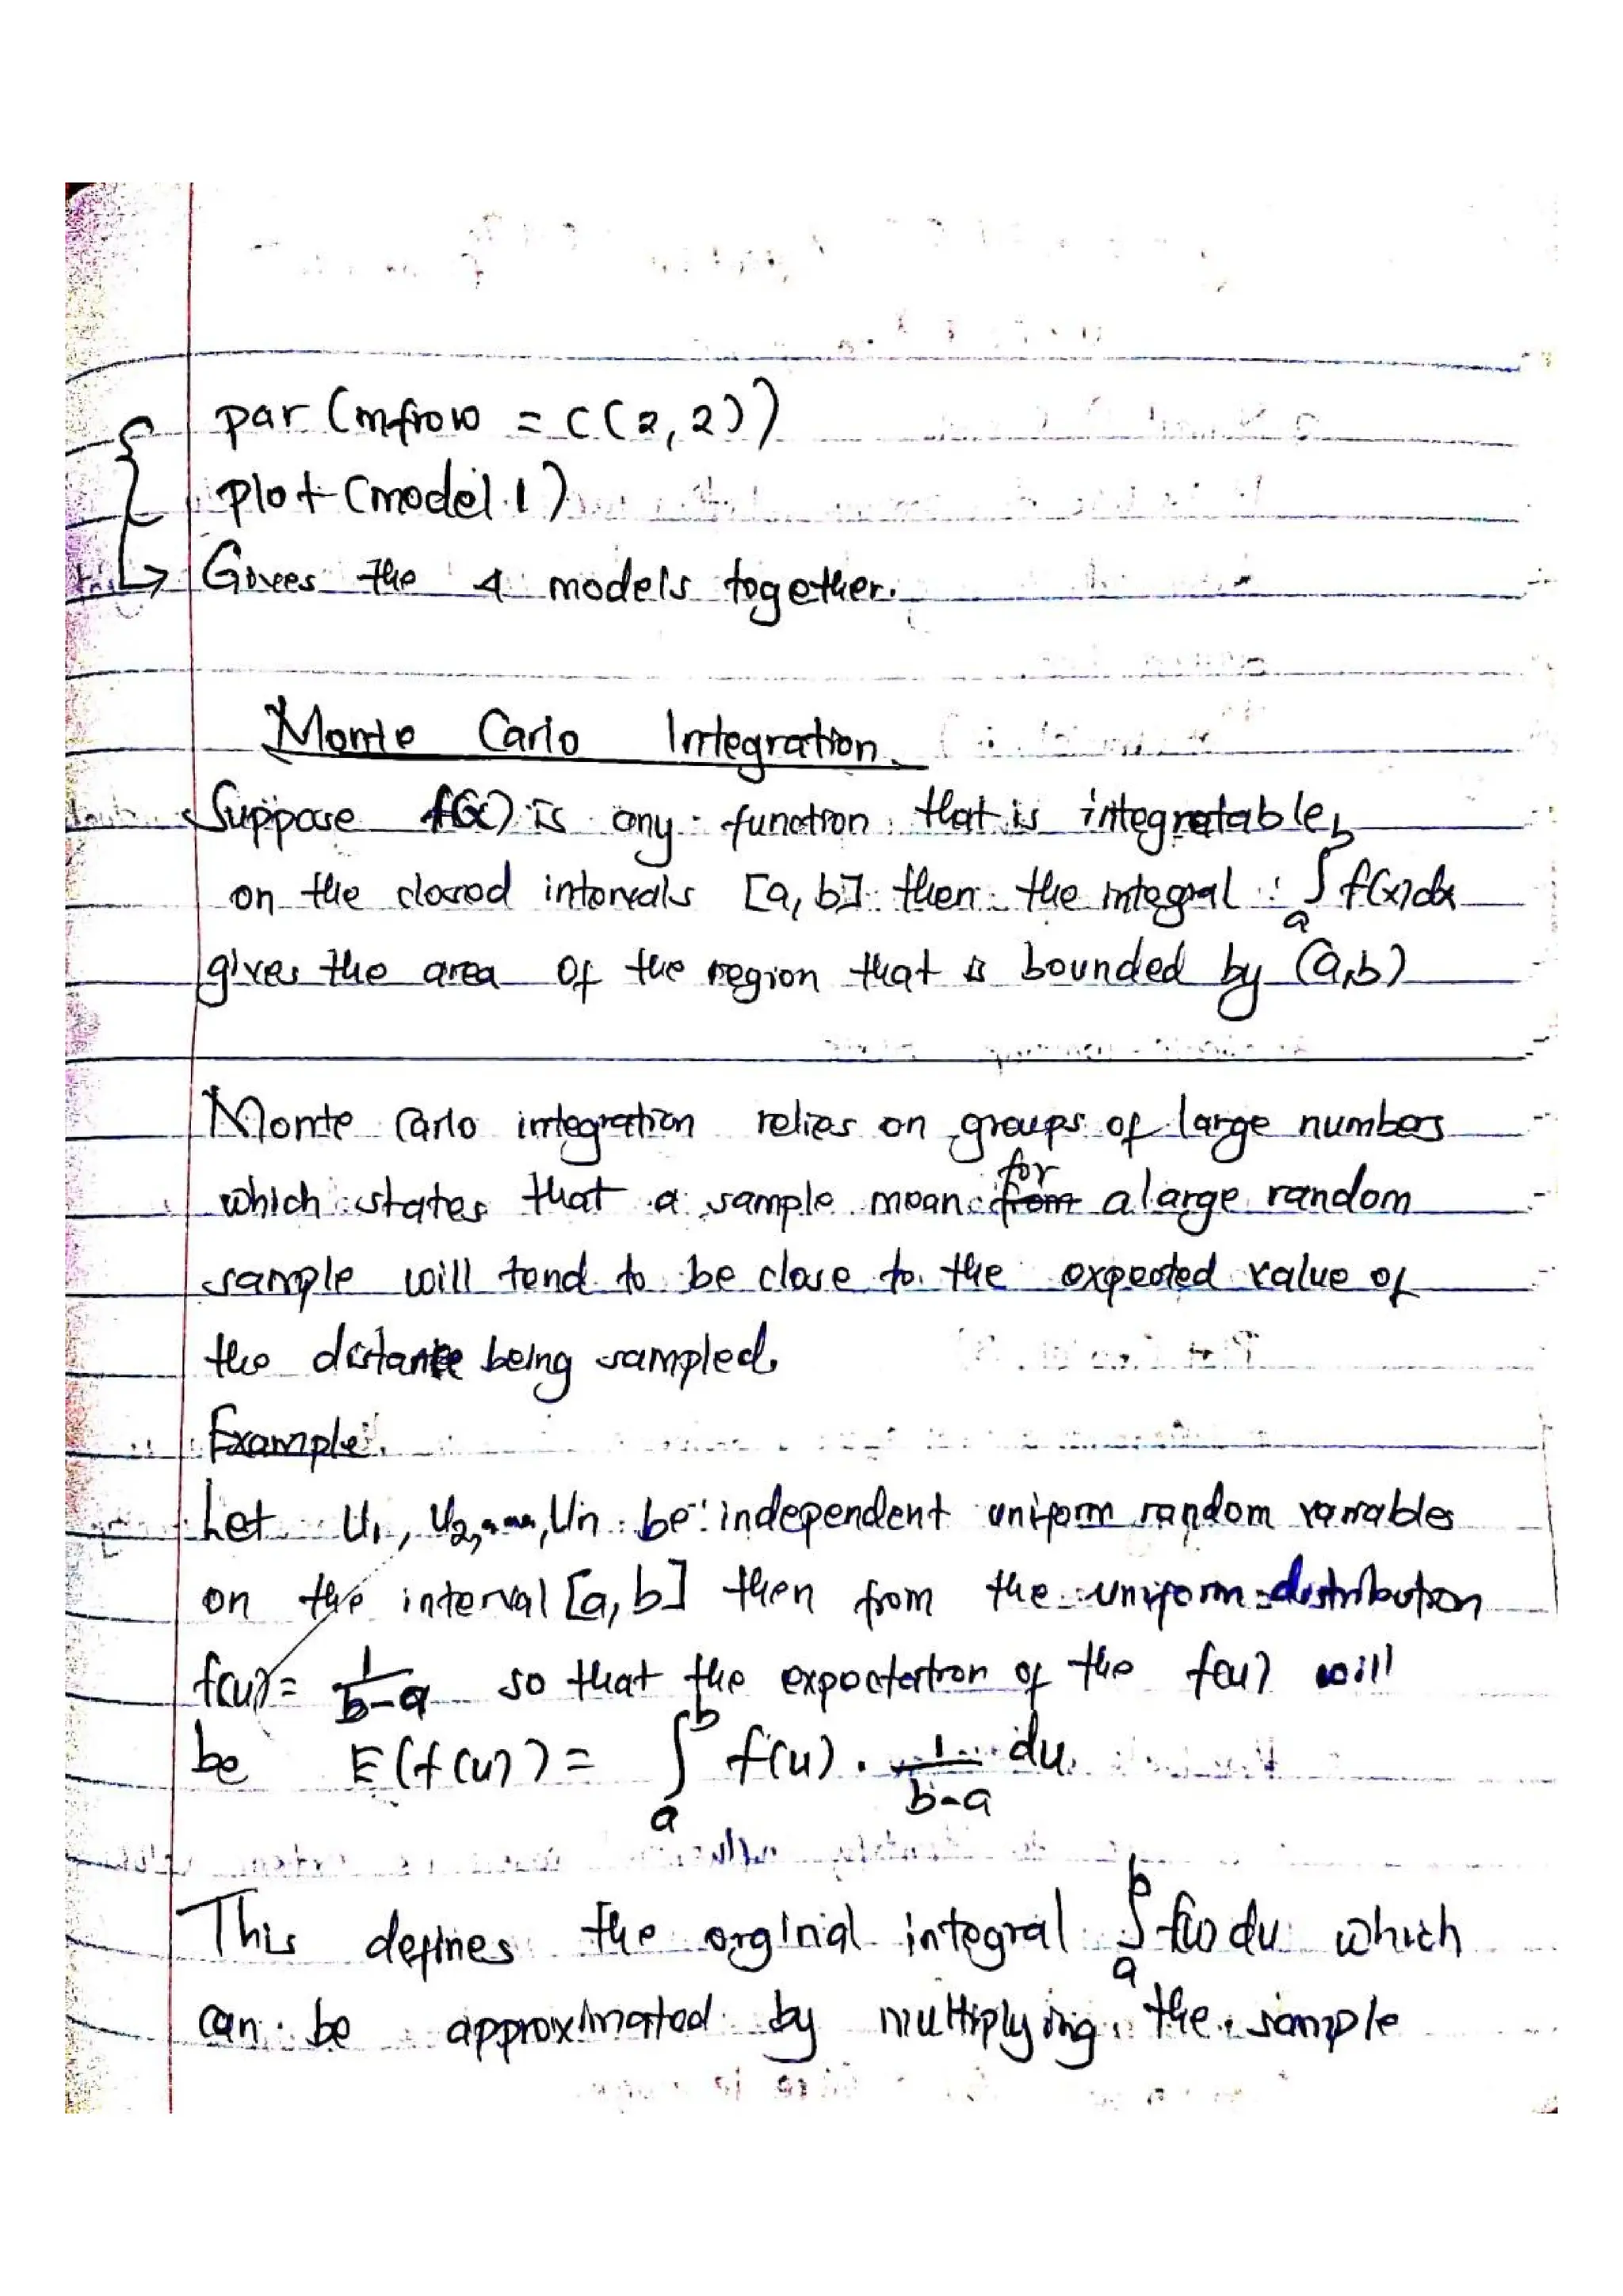 par (mfrow = c(2,2))
plot (model.1)
Givees the 4 models together.
Monte Carlo Integration.
Suppose f(x) is any function that is integratable
on the closed intervals [a, b] then the integral ∫ₐᵇ f(x)dx
gives the area of the region that is bounded by (a,b)
Monte Carlo integration relies on groups of large numbers
which states that a sample mean for ~~from~~ a large random
sample will tend to be close to the expected value of
the distance being sampled.
Example.
Let U₁, U₂,---, Un be independent uniform random variables
on the interval [a, b] then from the uniform distribution
f(u) = 1/(b-a) so that the expectation of the f(u) will
be E(f(u)) = ∫ₐᵇ f(u) . 1/(b-a) du.
This defines the orginial integral ∫ₐᵇ f(u) du which
can be approximated by multiplying the sample